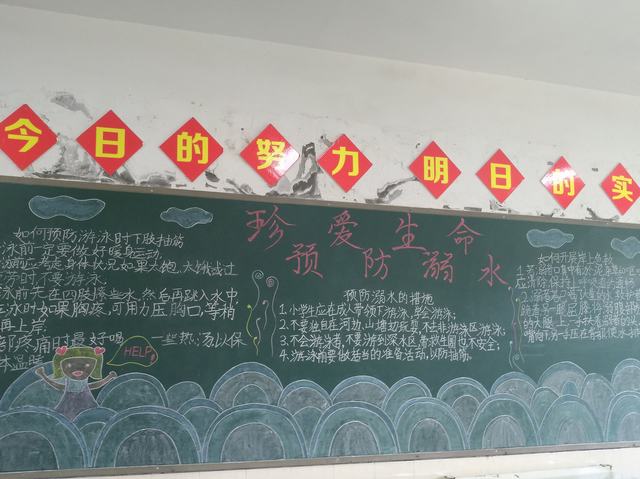 今日的努力 明日的实
珍爱生命
预防溺水
如何预防游泳时下肢抽筋
泳前一定要做好暖身运动
泳前应考虑身体状况如果太饱、太饿或过
劳时不要游泳
泳前先在四肢撩些水,然后再跳入水中
泳时如果胸疼,可用力压胸口,等稍
再上岸
部疼痛时最好喝一些热汤以保
体温暖
HELP
预防溺水的措施
1.小学生应在成人带领下游泳,学会游泳;
2.不要独自在河边、山塘边玩耍,不去非游泳区游泳;
3.不会游泳者,不要游到深水区,带救生圈也不安全;
4.游泳前要做适当的准备活动,以防抽筋。
如何开展岸上急救